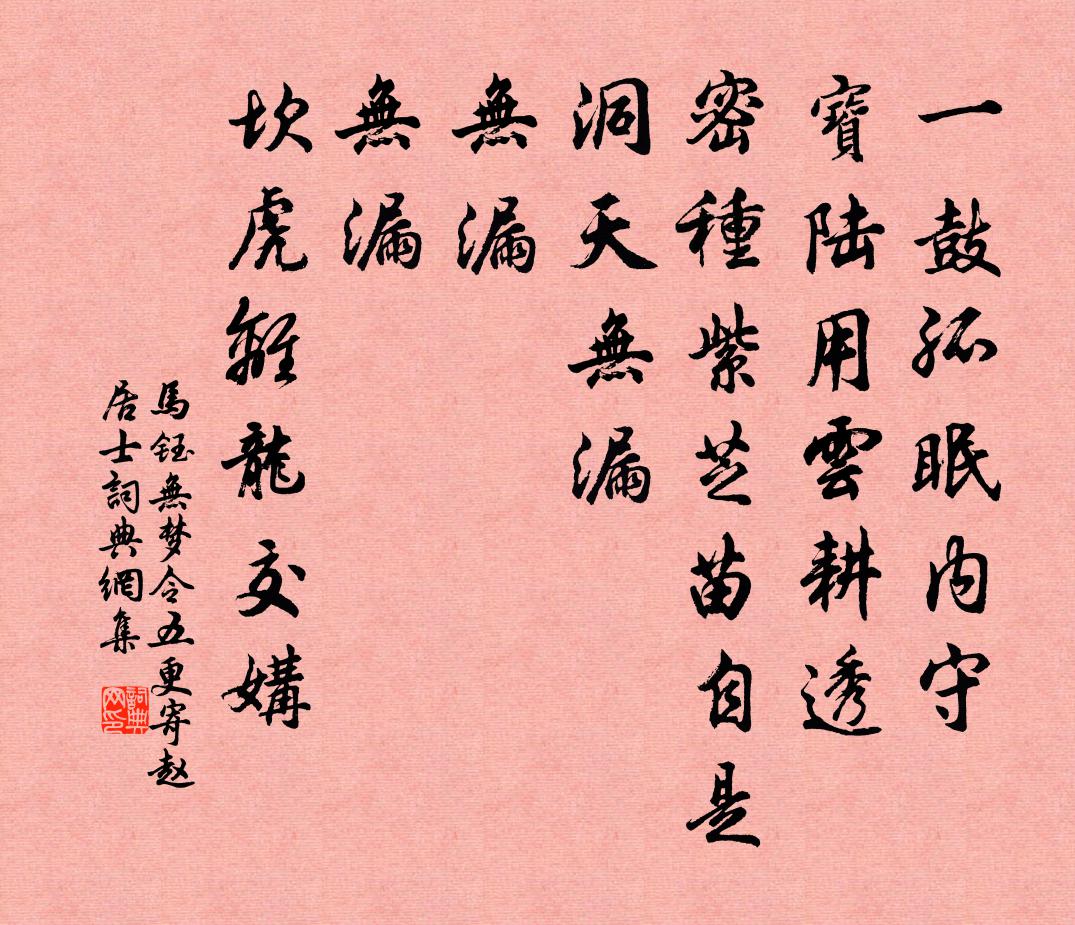 一鼓孤眠内守
寶陆用雲耕透
密種紫芝苗自是
洞天無漏
無漏
無漏
坎虎離龍交媾
馬鈺無梦令五更寄赵
居士詞典網集
詞典网印